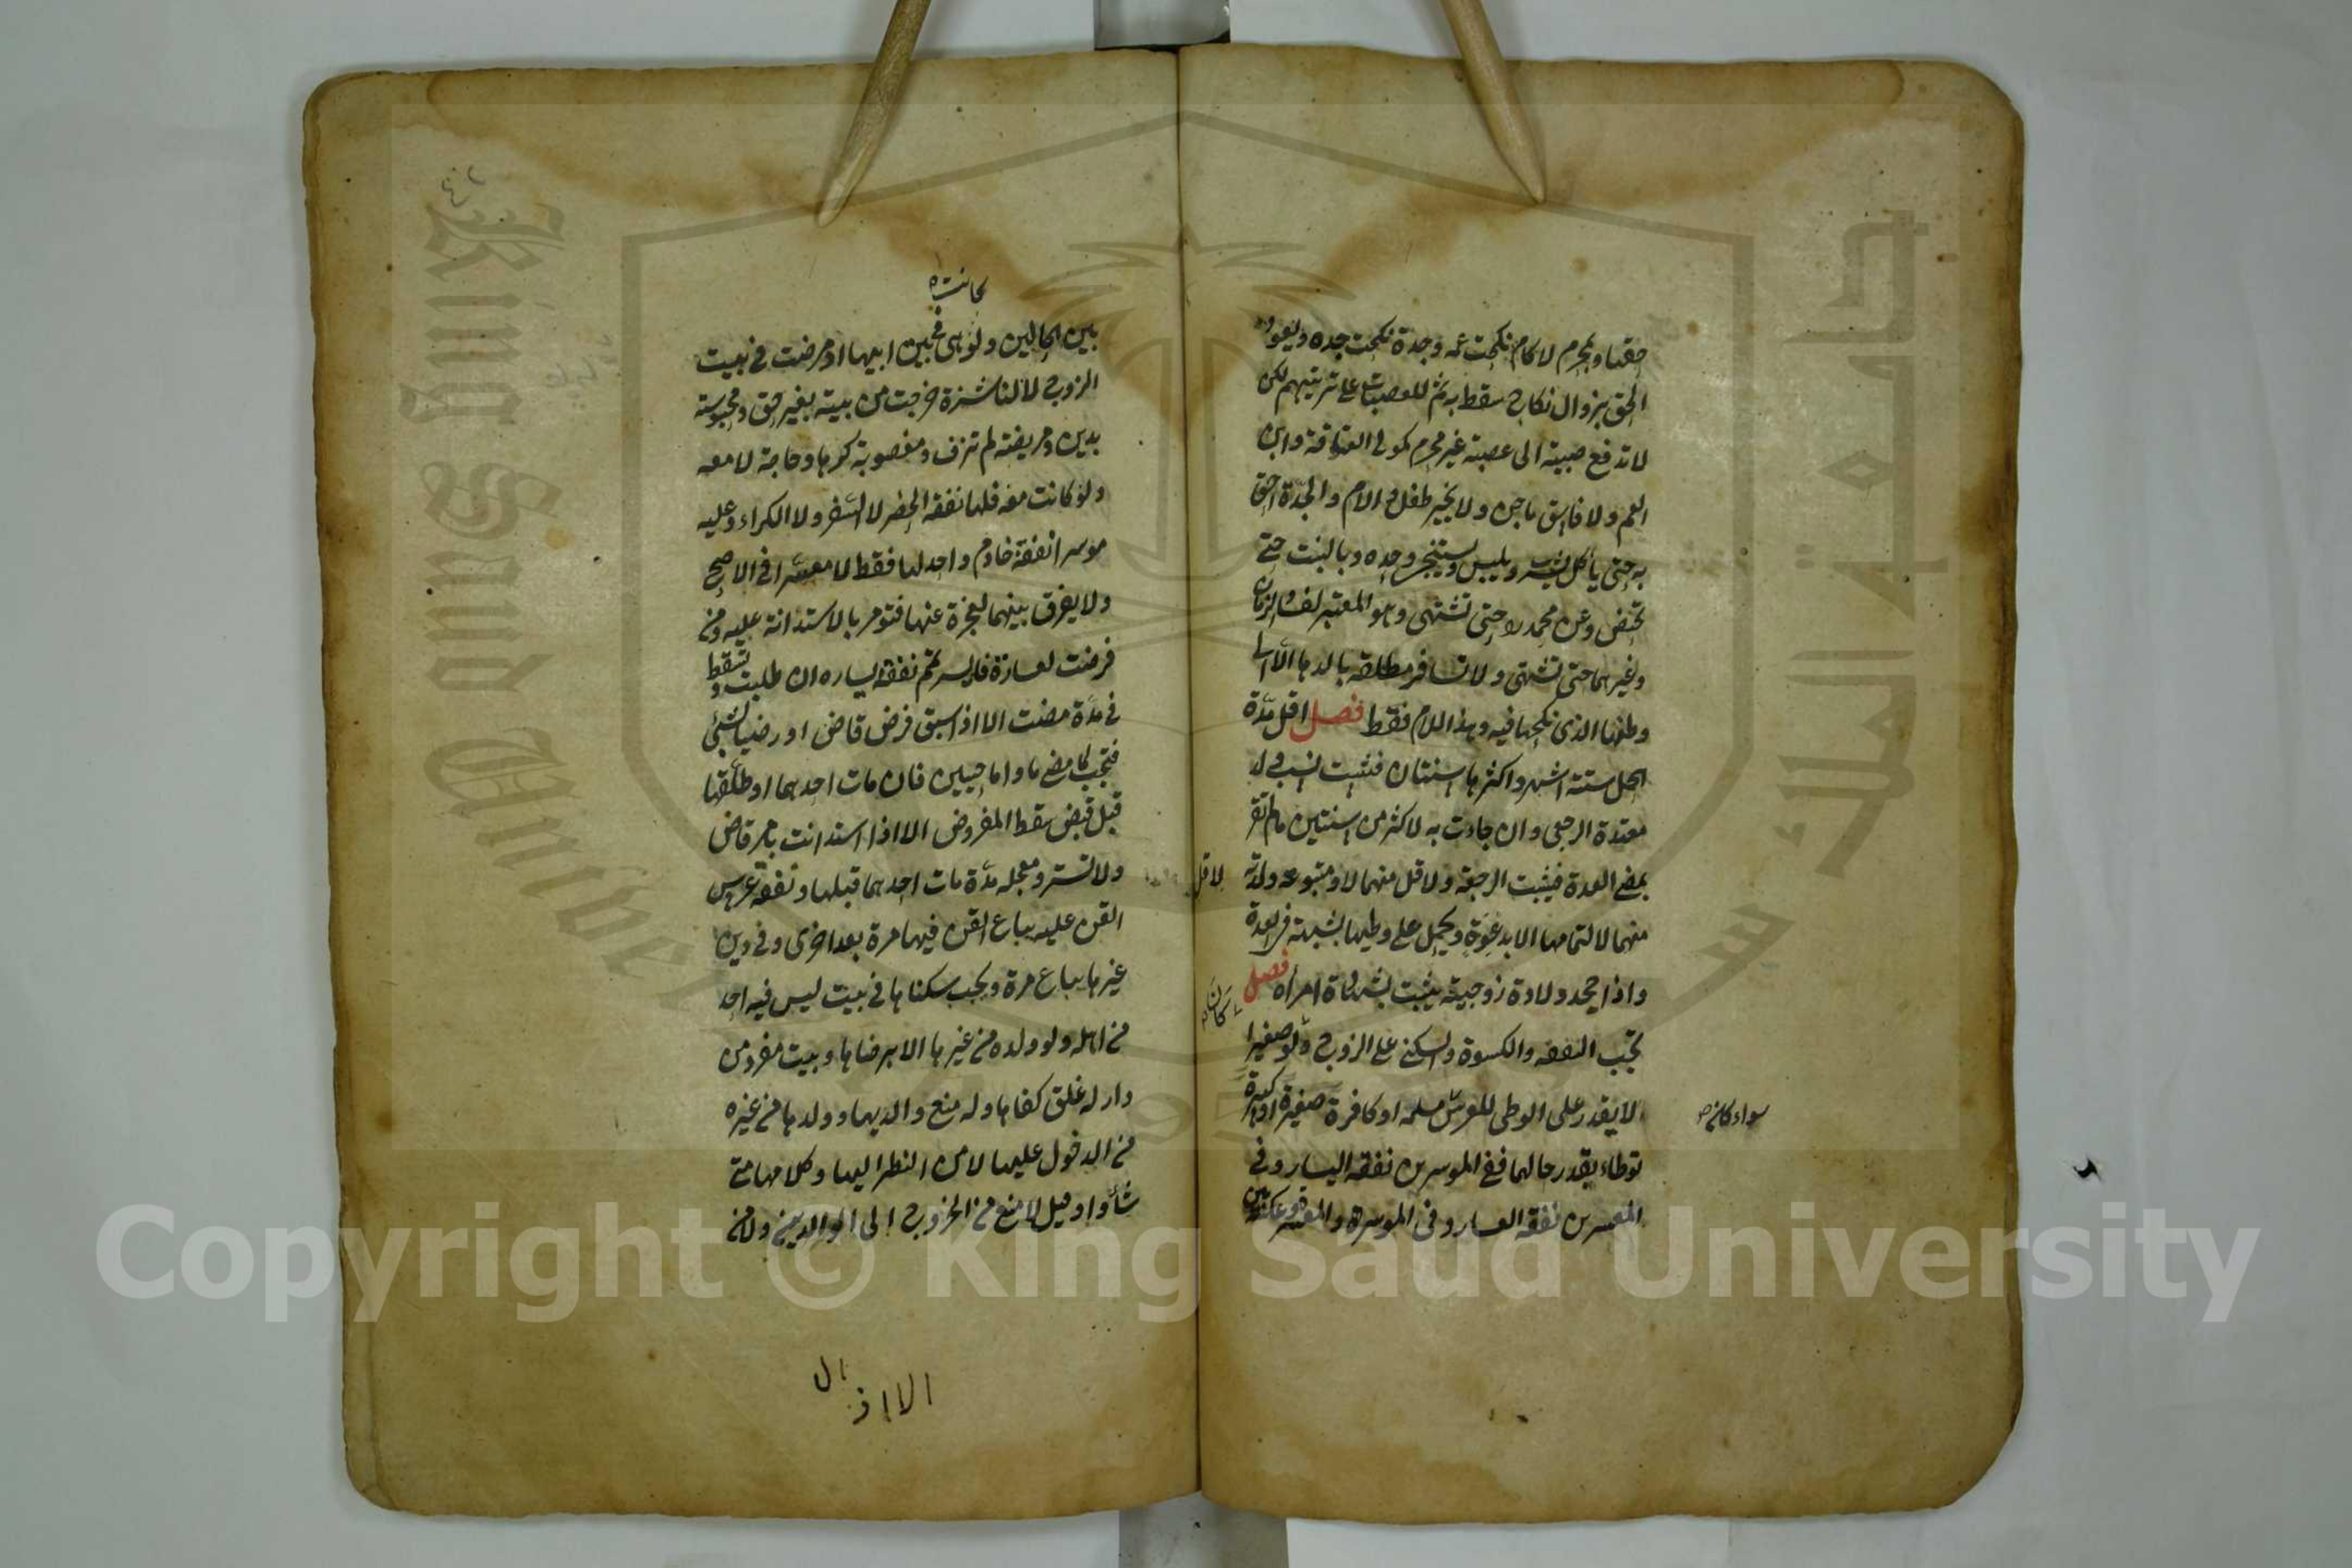 حقها وبمحرم لا كام نكحت عمه وجدة نكحت جده ويعود
الحق بزوال نكاح سقط به ثم للعصبات على ترتيبهم لكن
لا تدفع صبية الى عصبة غير محرم كمولى العتاقة وابن
العم ولا فاسق ماجن ولا يخير طفل والام والجدة احق
به حتى يأكل ويشرب ويلبس ويستنجى وحده وبالبنت حتى
تحيض وعن محمد رح حتى تشتهى وهو المعتبر لفساد الزمان
وغيرهما حتى تشتهى ولا تسافر مطلقة بالدها الا الى
وطنها الذى نكحها فيه وهذا للام فقط فصل اقل مدة
الحمل ستة اشهر واكثرها سنتان فيثبت نسب ولد
معتدة الرجعى وان جاءت به لاكثر من سنتين مالم تقر
بمضى العدة فيثبت الرجعة ولاقل منهما لا ومبتوتة ولدته
لاقل
منهما لا لتمامها الا بدعوة ويحمل على وطيها بشبهة فى العدة
واذا جحد ولادة زوجية يثبت بشهادة امرأة فصل
تجب النفقه والكسوة والسكنى على الزوج ولو صغيرا
لا يقدر على الوطى للعرس مسلمه او كافرة صغيرة او كبيرة
سواء كانه
توطاء بقدر حالهما ففى الموسرين نفقه اليسار وفى
المعسرين نفقه العسار وفى الموسرة والمعسر وعكسه
كانت
بين الحالين ولو هى فى بيت ابيها او مرضت فى بيت
الزوج لا لناشزة خرجت من بيته بغير حق ومحبوسة
بدين ومريضة لم تزف ومغصوبة كرها وحاجة لا معه
ولو كانت معه فلها نفقة الحضر لا السفر ولا الكراء وعليه
موسرا نفقة خادم واحد لها فقط لا معسرا فى الاصح
ولا يفرق بينهما لعجزه عنها فتؤمر بالاستدانة عليه ومن
فرضت لعسارة فايسر تمم نفقة يساره ان طلبت وتسقط
فى مدة مضت الا اذا سبق فرض قاض او رضيا بشئ
فتجب لما مضى ما داما حيين فان مات احدهما او طلقها
قبل قبض سقط المفروض الا اذا استدانت بامر قاض
ولا تسترد معجلة مدة مات احدهما قبلها ونفقة عرس
القن عليه يباع القن فيها مرة بعد اخرى وفى دين
غيرها يباع مرة ويجب سكناها فى بيت ليس فيه احد
من اهله ولو ولده من غيرها الا برضاها وبيت مفرد من
دار له غلق كفاها وله منع والديها وولدها من غيره
من الدخول عليها لا من النظر اليها وكلامها متى
شأوا وقيل لا منع من الخروج الى الوالدين ولا من
Copyright © King Saud University